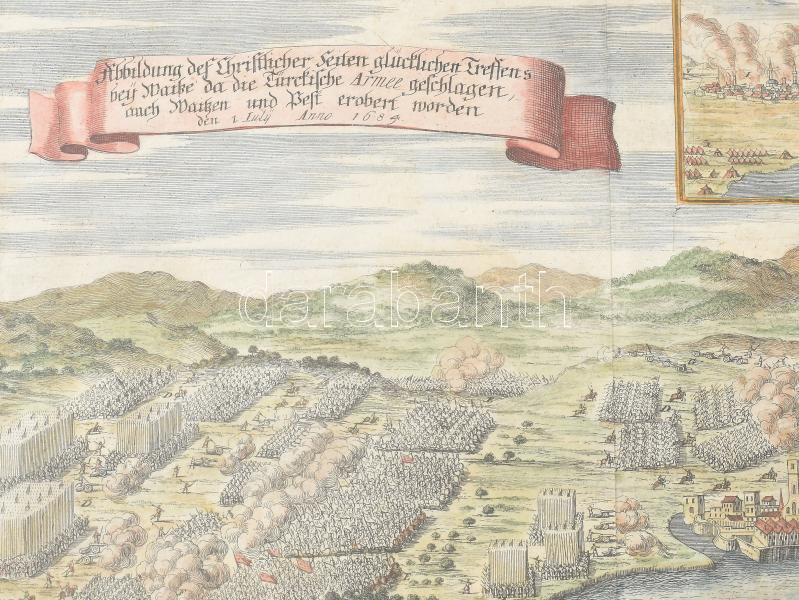 Abbildung deß Christlicher Seiten glücklichen Treffens
beÿ Waitze da die Türckische Armee geschlagen,
auch Waitzen und Pest erobert worden
den 1 July Anno 1684.
darabanth